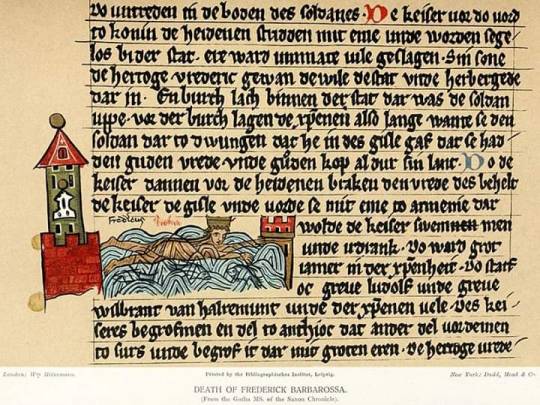 vo untreden in de boden des soldanes. De keiser vor do vord
to konin de heidenen stridden mit eme unde worden sege
los bi der stat. ere ward unmate vile geslagen. Sin sone
de hertoge vrederic gewan de wile de stat unde herbergede
dar in. En burch lach binnen der stat dar was de soldan
uppe. vor der burch lagen de xpenen also lange wante se den
soldan dar to dwungen dat he in des gisle gaf dar se had
den guden vrede unde guden kop al dur sin lant. Do de
keiser dannen vor de heidenen braken den vrede des behelt
de keiser de gisle unde vorde se mit eme to armenie dar
wolde de keiser swemmen
unde udrank. Do ward grot
iamer in der xpenheit. Do starf
oc greve ludolf unde greve
wilbrant van halremunt unde der xpenen vele. Des kei
seres begrof men en del to anthioc dat ander del vorden
to surs unde begrof it dar mit groten eren. De hertoge vrede
Fredericus
London: Wm Heinemann.
Printed by the Bibliographisches Institut, Leipzig.
New York: Dodd, Mead & Co.
DEATH OF FREDERICK BARBAROSSA.
(From the Gotha MS. of the Saxon Chronicle).